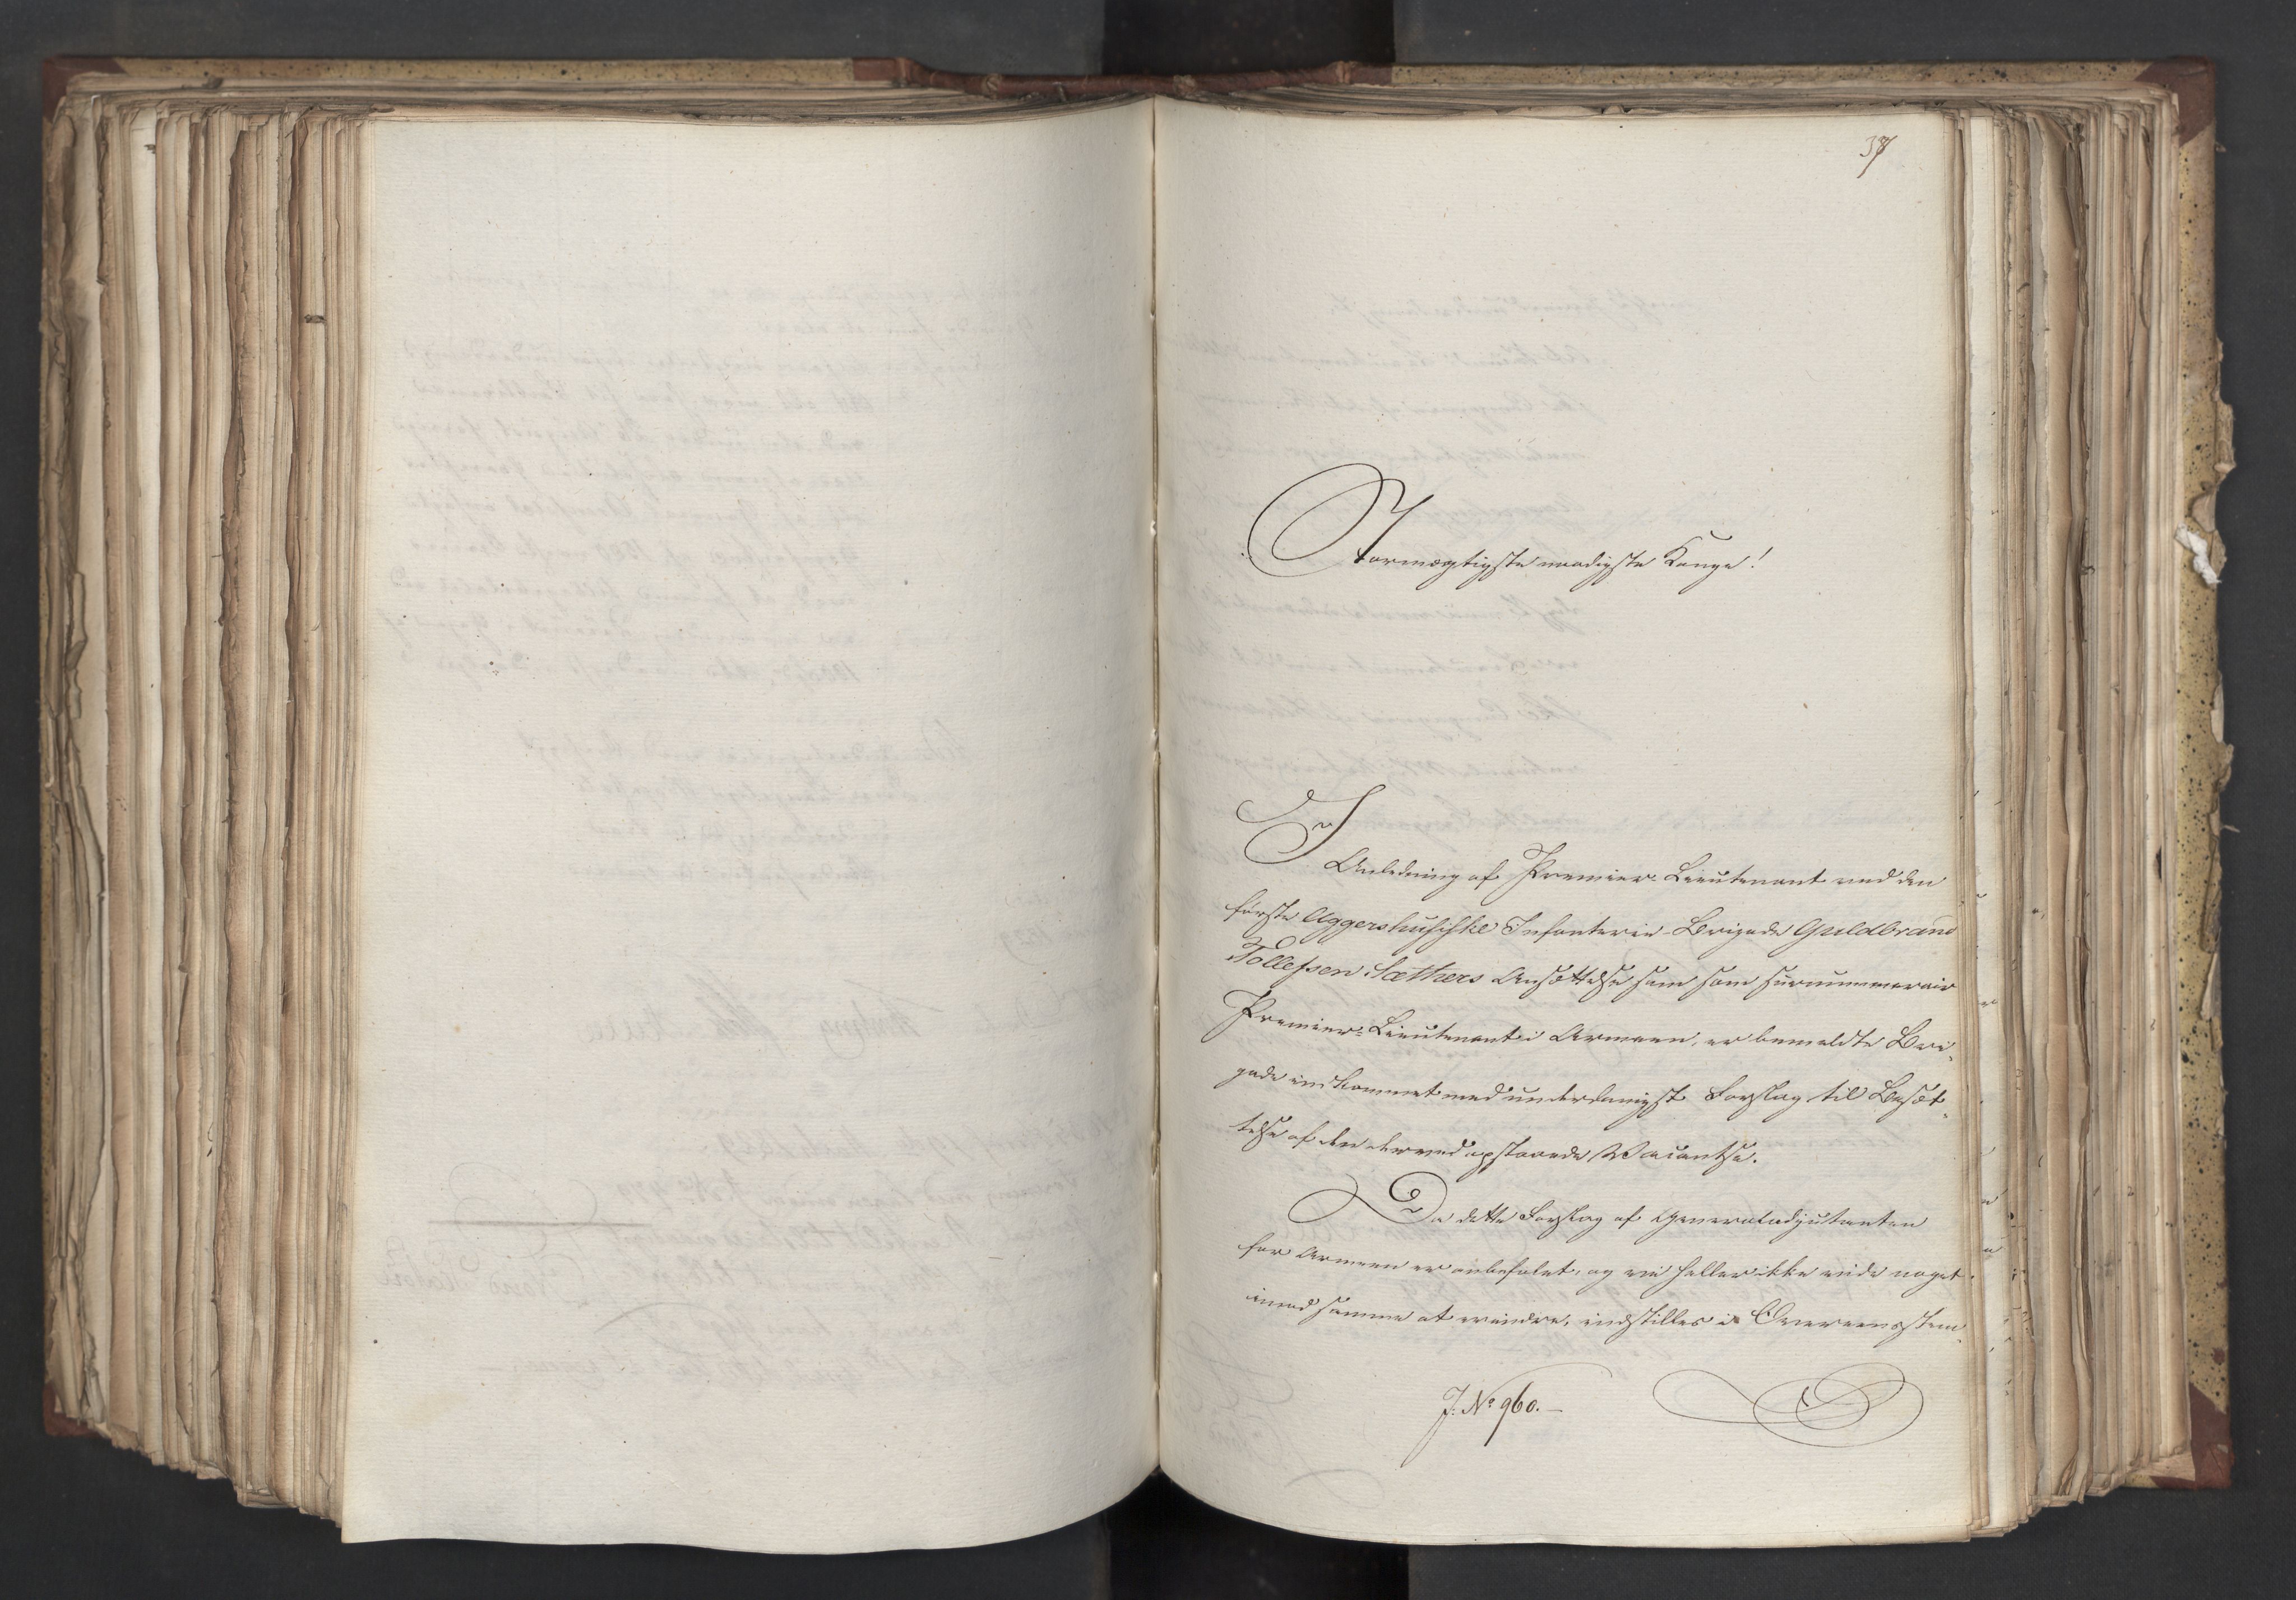 37
Stormægtigste naadigste Konge!
I
Anledning af Premier-Lieutenant ved den
første Aggershusiske Infanterie-Brigade Guldbrand
Tollefsen Sæthers Ansættelse som surnummerair
Premier-Lieutenant i Armeen, er bemeldte Bri-
gade indkommet med underdanigst Forslag til Besæt-
telse af den derved opstaaede Vacantse.
Da dette Forslag af Generaladjutanten
for Armeen er anbefalet, og vi heller ikke vide noget
imod samme at erindre, indstilles i Overeensstem-
J: No 960.-